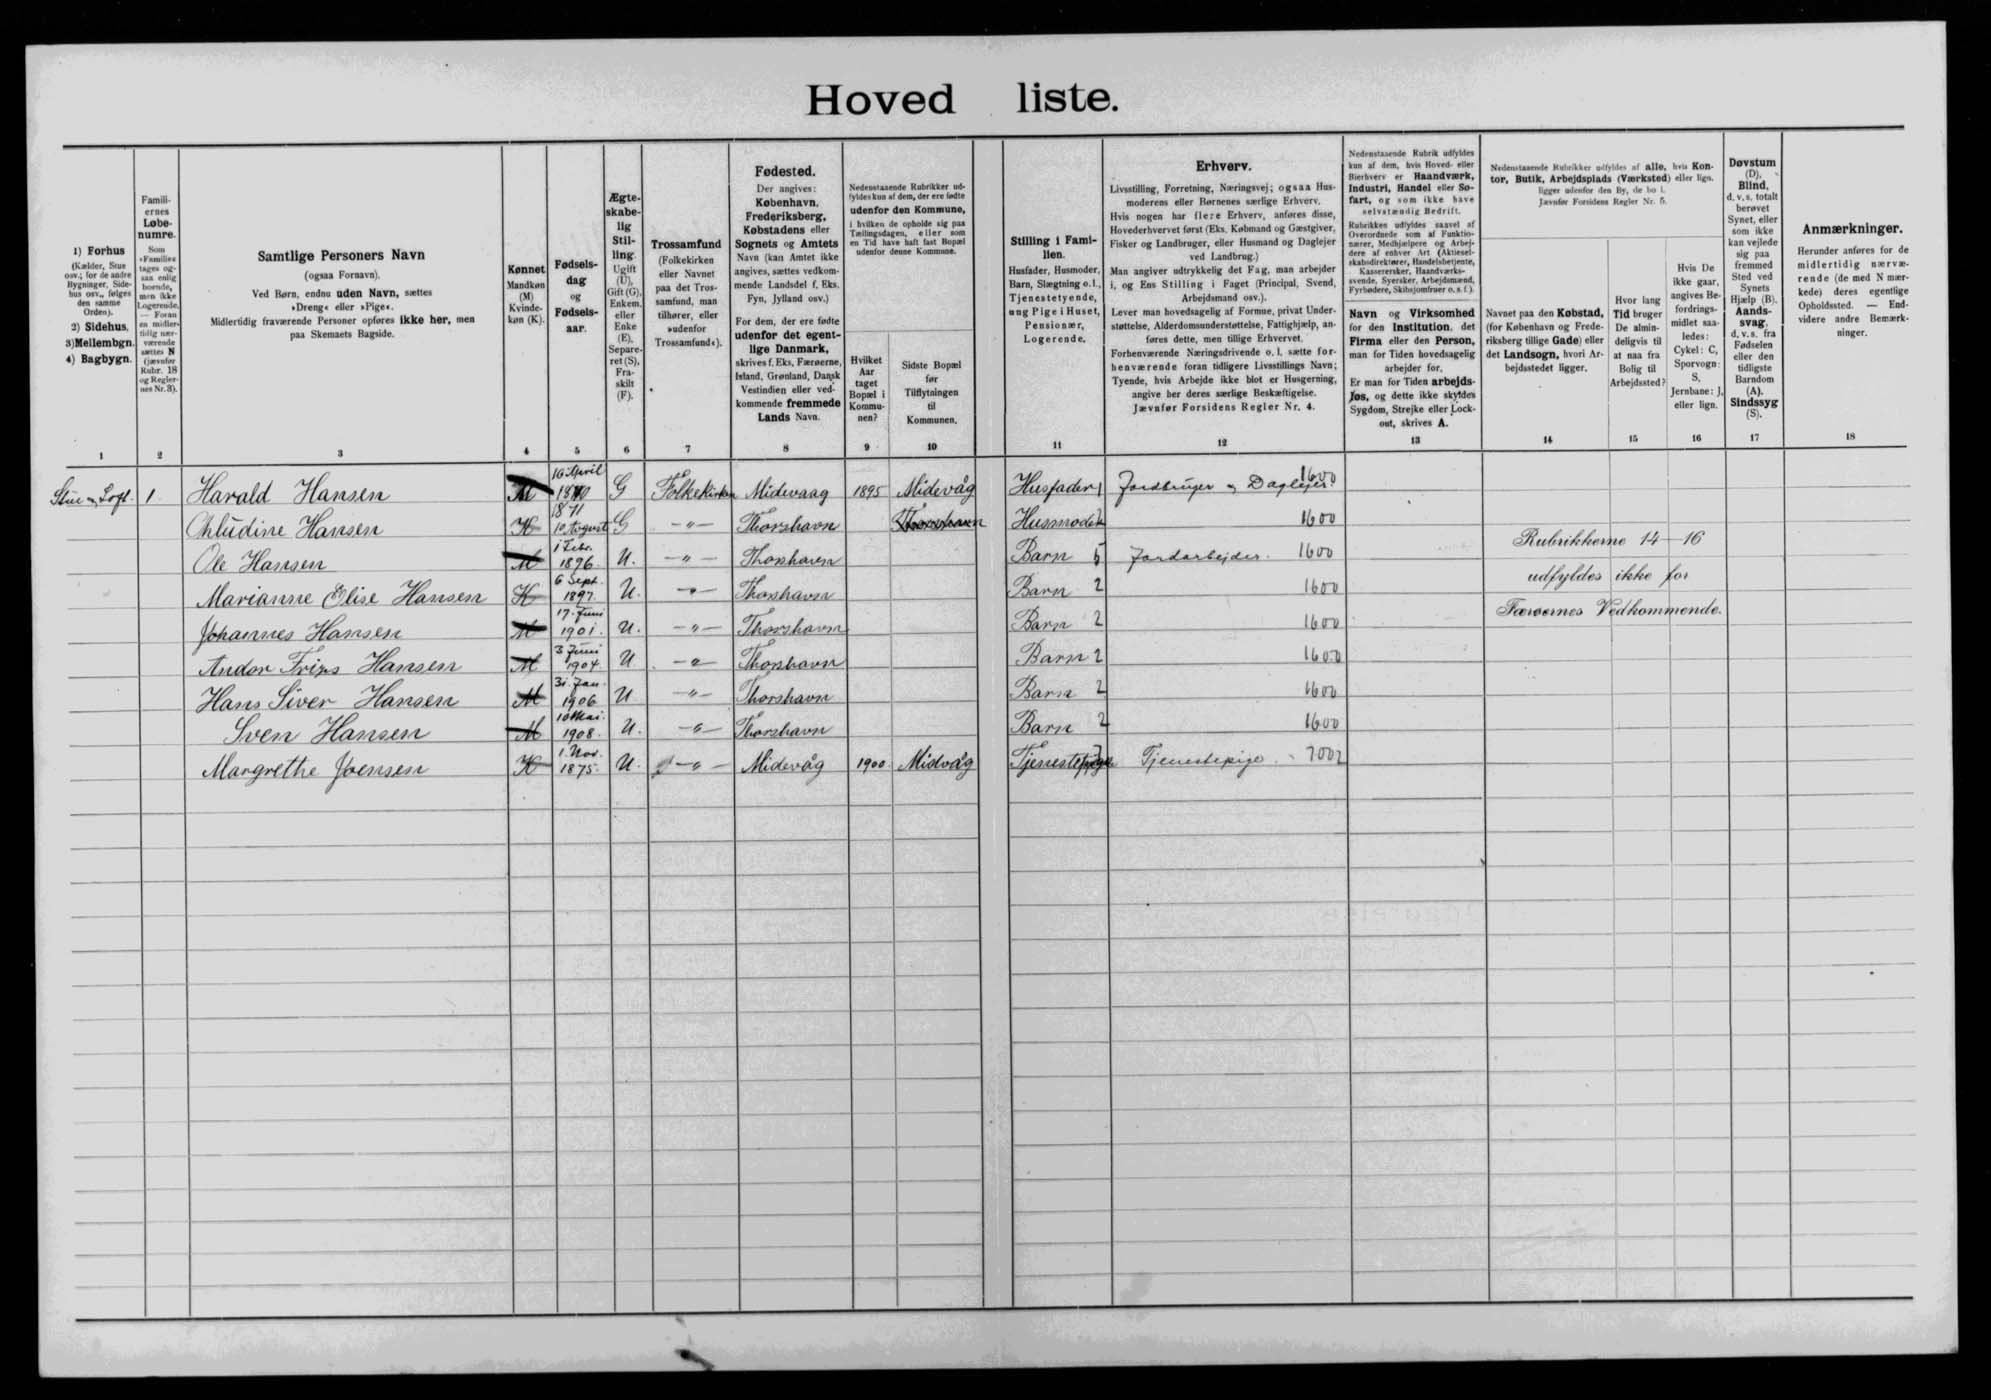 Hoved liste.
1) Forhus
(Kælder, Stue
osv.; for de andre
Bygninger, Side-
hus osv., følges
den samme
Orden).
2) Sidehus.
3) Mellembgn.
4) Bagbygn.
1
Famili-
ernes
Løbe-
numre.
Som
»Familie«
tages og-
saa enlig
boende,
men ikke
Logerende.
— Foran
en midler-
tidig nær-
værende
sættes N
(jævnfør
Rubr. 18
og Regler-
nes Nr. 3).
2
Samtlige Personers Navn
(ogsaa Fornavn).
Ved Børn, endnu uden Navn, sættes
»Dreng« eller »Pige«.
Midlertidig fraværende Personer opføres ikke her, men
paa Skemaets Bagside.
3
Kønnet
Mandkøn
(M)
Kvinde-
køn (K).
4
Fødsels-
dag
og
Fødsels-
aar.
5
Ægte-
skabe-
lig
Stil-
ling.
Ugift
(U),
Gift (G),
Enkem.
eller
Enke
(E),
Separe-
ret (S),
Fra-
skilt
(F).
6
Trossamfund
(Folkekirken
eller Navnet
paa det Tros-
samfund, man
tilhører, eller
»udenfor
Trossamfund«).
7
Fødested.
Der angives:
København,
Frederiksberg,
Købstadens eller
Sognets og Amtets
Navn (kan Amtet ikke
angives, sættes vedkom-
mende Landsdel f. Eks.
Fyn, Jylland osv.)
For dem, der ere fødte
udenfor det egent-
lige Danmark,
skrives f. Eks. Færøerne,
Island, Grønland, Dansk
Vestindien eller ved-
kommende fremmede
Lands Navn.
8
Nedenstaaende Rubrikker ud-
fyldes kun af dem, der ere fødte
udenfor den Kommune,
i hvilken de opholde sig paa
Tællingsdagen, eller som
en Tid have haft fast Bopæl
udenfor denne Kommune.
Hvilket
Aar
taget
Bopæl i
Kommu-
nen?
9
Sidste Bopæl
før
Tilflytningen
til
Kommunen.
10
Stilling i Fami-
lien.
Husfader, Husmoder,
Barn, Slægtning o. l.,
Tjenestetyende,
ung Pige i Huset,
Pensionær,
Logerende.
11
Erhverv.
Livsstilling, Forretning, Næringsvej; ogsaa Hus-
moderens eller Børnenes særlige Erhverv.
Hvis nogen har flere Erhverv, anføres disse,
Hovederhvervet først (Eks. Købmand og Gæstgiver,
Fisker og Landbruger, eller Husmand og Daglejer
ved Landbrug.)
Man angiver udtrykkelig det Fag, man arbejder
i, og Ens Stilling i Faget (Principal, Svend,
Arbejdsmand osv.).
Lever man hovedsagelig af Formue, privat Under-
støttelse, Alderdomsunderstøttelse, Fattighjælp, an-
føres dette, men tillige Erhvervet.
Forhenværende Næringsdrivende o. l. sætte for-
henværende foran tidligere Livsstillings Navn;
Tyende, hvis Arbejde ikke blot er Husgerning,
angive her deres særlige Beskæftigelse.
Jævnfør Forsidens Regler Nr. 4.
12
Nedenstaaende Rubrik udfyldes
kun af dem, hvis Hoved- eller
Bierhverv er Haandværk,
Industri, Handel eller Sø-
fart, og som ikke have
selvstændig Bedrift.
Rubrikken udfyldes saavel af
Overordnede som af Funktio-
nærer, Medhjælpere og Arbej-
dere af enhver Art (Aktiesel-
skabsdirektører, Handelsbetjente,
Kasserersker, Haandværks-
svende, Syersker, Arbejdsmænd,
Fyrbødere, Skibsjomfruer o. s. f.).
Navn og Virksomhed
for den Institution, det
Firma eller den Person,
man for Tiden hovedsagelig
arbejder for.
Er man for Tiden arbejds-
løs, og dette ikke skyldes
Sygdom, Strejke eller Lock-
out, skrives A.
13
Nedenstaaende Rubrikker udfyldes af alle, hvis Kon-
tor, Butik, Arbejdsplads (Værksted) eller lign.
ligger udenfor den By, de bo i.
Jævnfør Forsidens Regler Nr. 5.
Navnet paa den Købstad,
(for København og Frede-
riksberg tillige Gade) eller
det Landsogn, hvori Ar-
bejdsstedet ligger.
14
Hvor lang
Tid bruger
De almin-
deligvis til
at naa fra
Bolig til
Arbejdssted?
15
Hvis De
ikke gaar,
angives Be-
fordrings-
midlet saa-
ledes:
Cykel: C,
Sporvogn:
S,
Jernbane: J,
eller lign.
16
Døvstum
(D),
Blind,
d. v. s. totalt
berøvet
Synet, eller
som ikke
kan vejlede
sig paa
fremmed
Sted ved
Synets
Hjælp (B),
Aands-
svag,
d. v. s. fra
Fødselen
eller den
tidligste
Barndom
(A).
Sindssyg
(S).
17
Anmærkninger.
Herunder anføres for de
midlertidig nærvæ-
rende (de med N mær-
kede) deres egentlige
Opholdssted. — End-
videre andre Bemærk-
ninger.
18
Stue og Loft. 1. Harald Hansen M 16 April 1870 G Folkekirken Midevaag 1895 Midevåg Husfader 1 Jordbruger og Daglejer. 1600
Hansen K 1871 10 August G -"- Thorshavn Thorshavn Husmoder 1600
Ole Hansen M 1 Febr. 1896. U. -"- Thorshavn Barn 5 Jordarbejder. 1600
Marianne Elise Hansen K 6 Sept. 1897. U. -"- Thorshavn Barn 2 1600
Johannes Hansen M 17. Juni 1901. U. -"- Thorshavn Barn 2 1600
Andor Hansen M 3 Juni 1904. U. -"- Thorshavn Barn 2 1600
Hans Siver Hansen M 31. Jan. 1906 U -"- Thorshavn Barn 2 1600
Sven Hansen M 10 Mai. 1908. U. -"- Thorshavn Barn 2 1600
Margrethe Joensen K 1. Nov. 1875. U. -"- Midevåg 1900. Midvåg Tjenestepige Tjenestepige
Rubrikkerne 14—16
udfyldes ikke for
Færøernes Vedkommende.